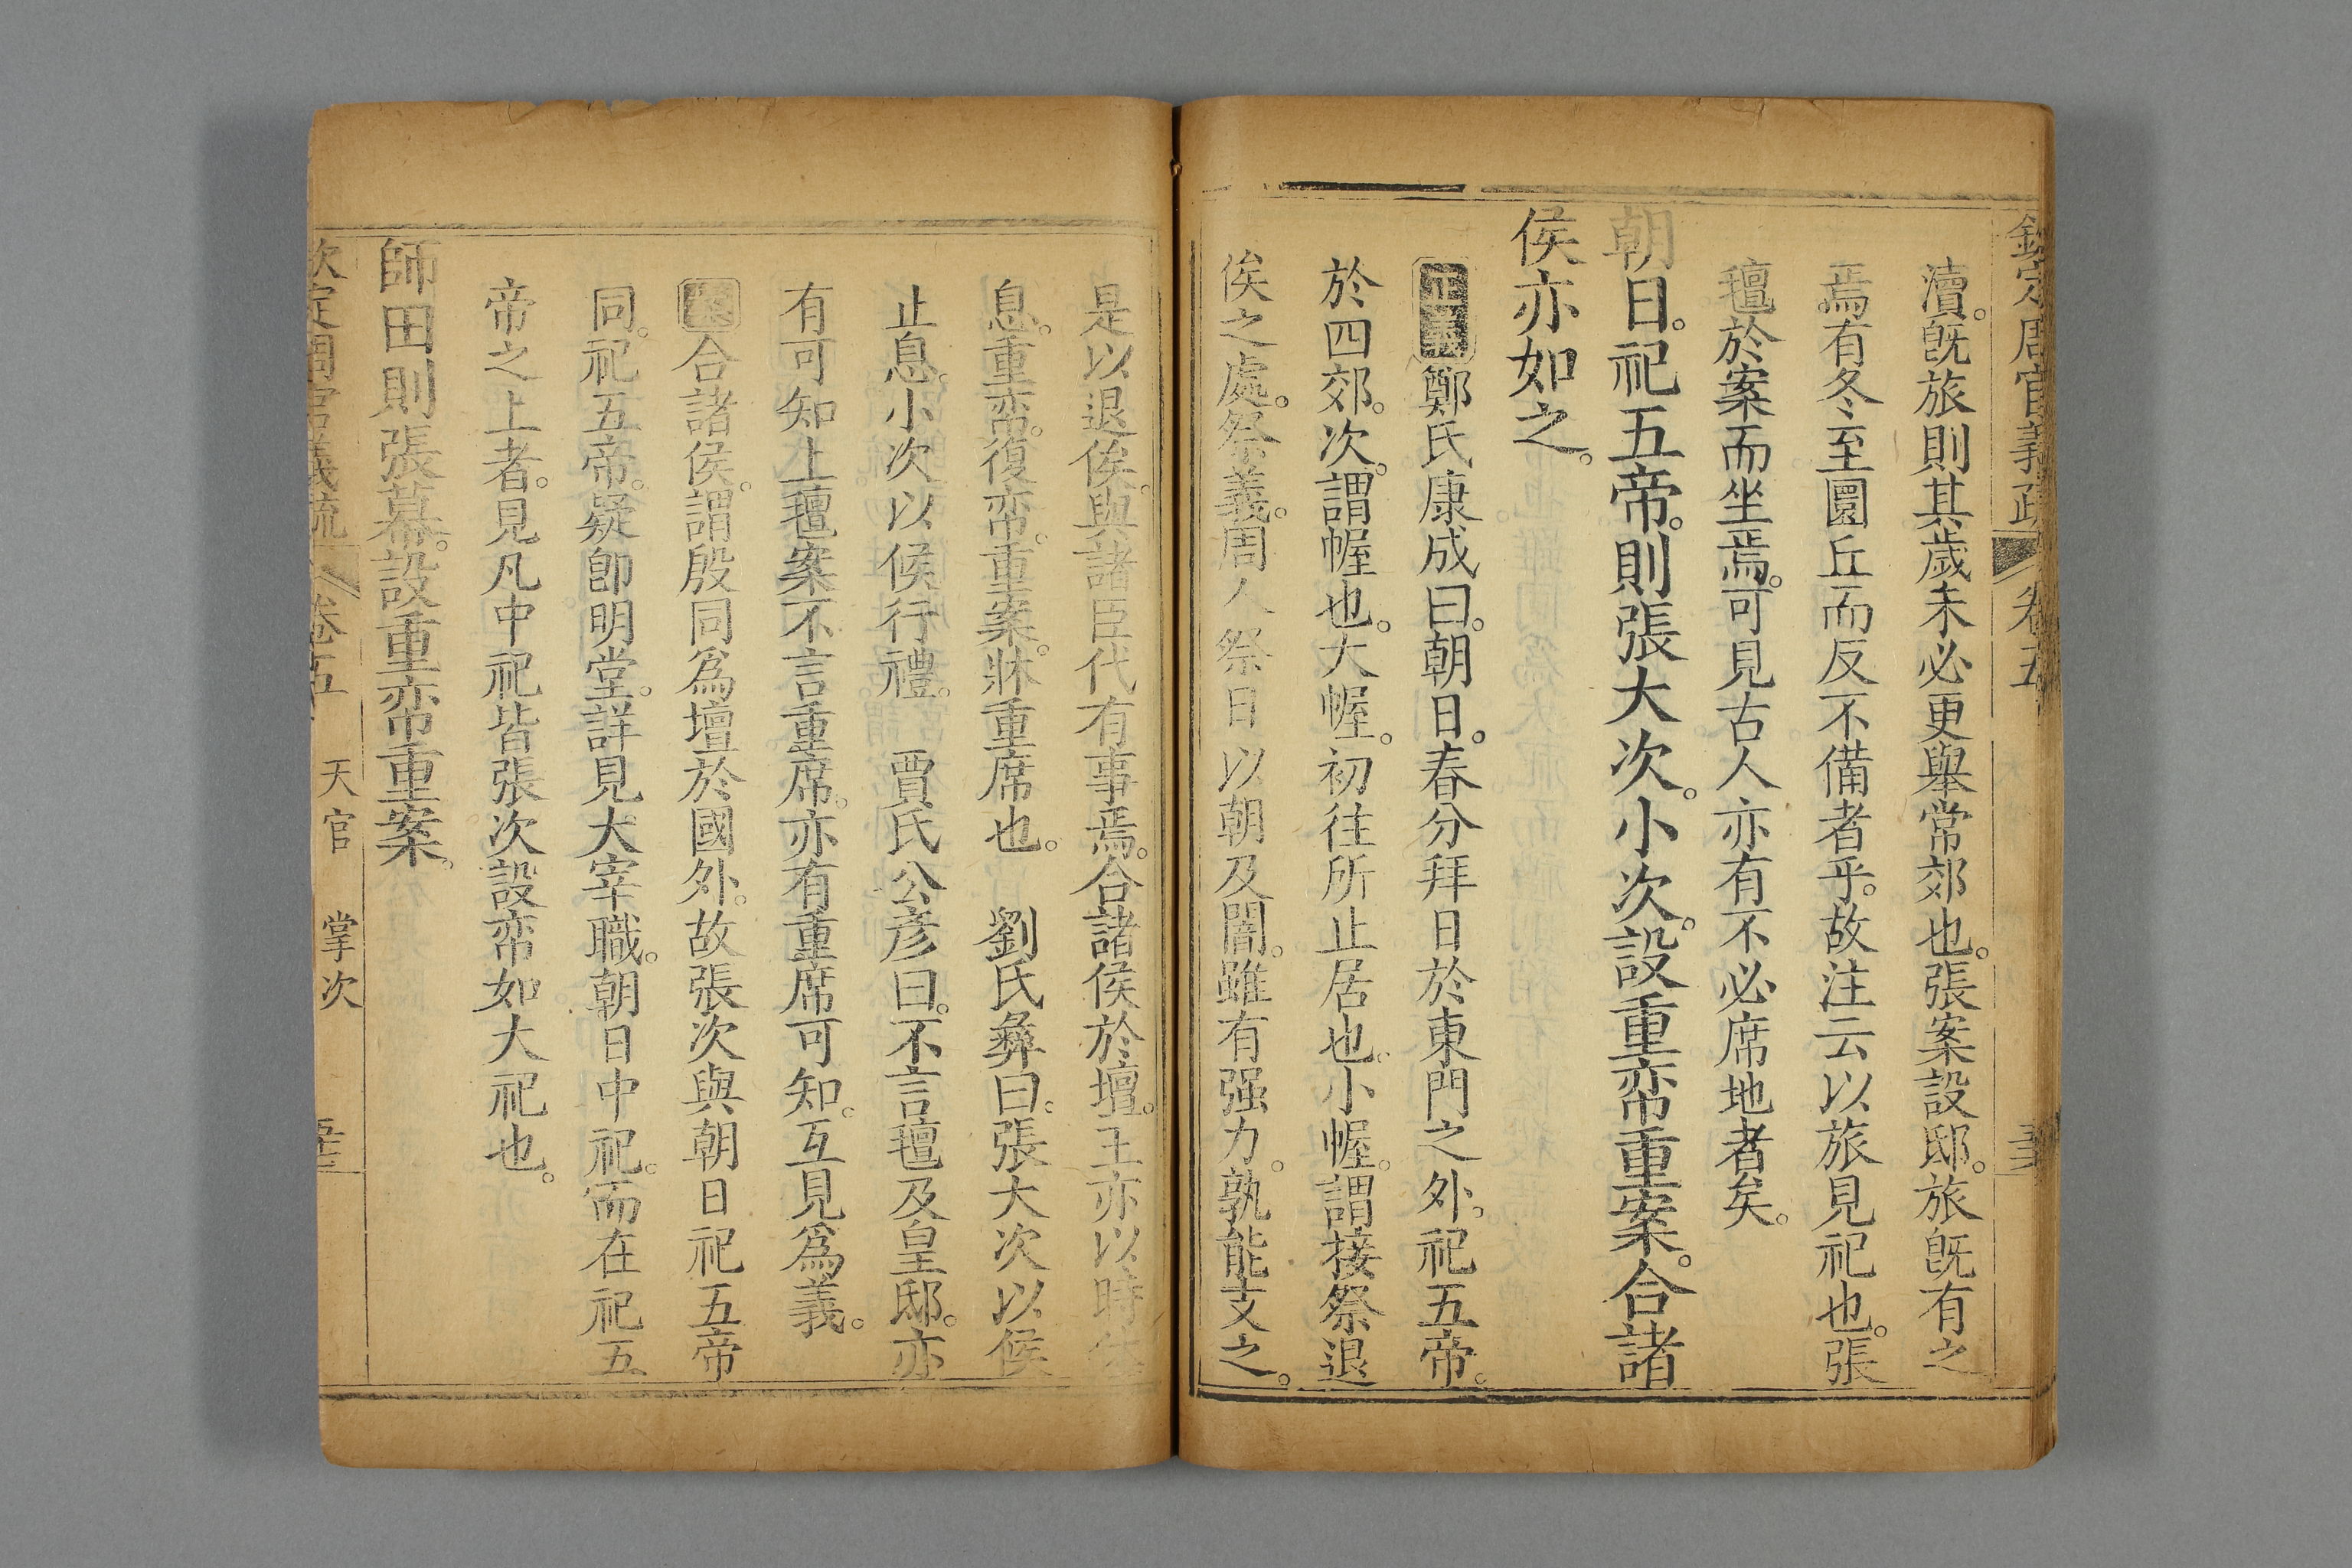 欽定周官義疏 卷五
瀆。旣旅則其歲未必更舉常郊也。張案設邸。旅旣有之
焉。有冬至圜丘而反不備者乎。故注云以旅見祀也。張
氊於案而坐焉。可見古人亦有不必席地者矣。
朝日。祀五帝。則張大次。小次。設重帟重案。合諸
侯亦如之。
正義鄭氏康成曰。朝日。春分拜日於東門之外。祀五帝。
於四郊。次。謂幄也。大幄。初往所止居也。小幄。謂接祭退
俟之處。祭義。周人祭日以朝及闇。雖有强力。孰能支之。
是以退俟。與諸臣代有事焉。合諸侯於壇。王亦以時休
息。重帟。復帟。重案。牀重席也。 劉氏彝曰。張大次以候
止息。小次以候行禮。 賈氏公彦曰。不言氊及皇邸。亦
有可知上氊案不言重席。亦有重席可知。互見爲義。
合諸侯。謂殷同爲壇於國外。故張次與朝日祀五帝
同。祀五帝。疑卽明堂。詳見大宰職。朝日中祀。而在祀五
帝之上者。見凡中祀皆張次設帟如大祀也。
師田則張幕。設重帟重案。
欽定周官義疏 卷五 天官 掌次